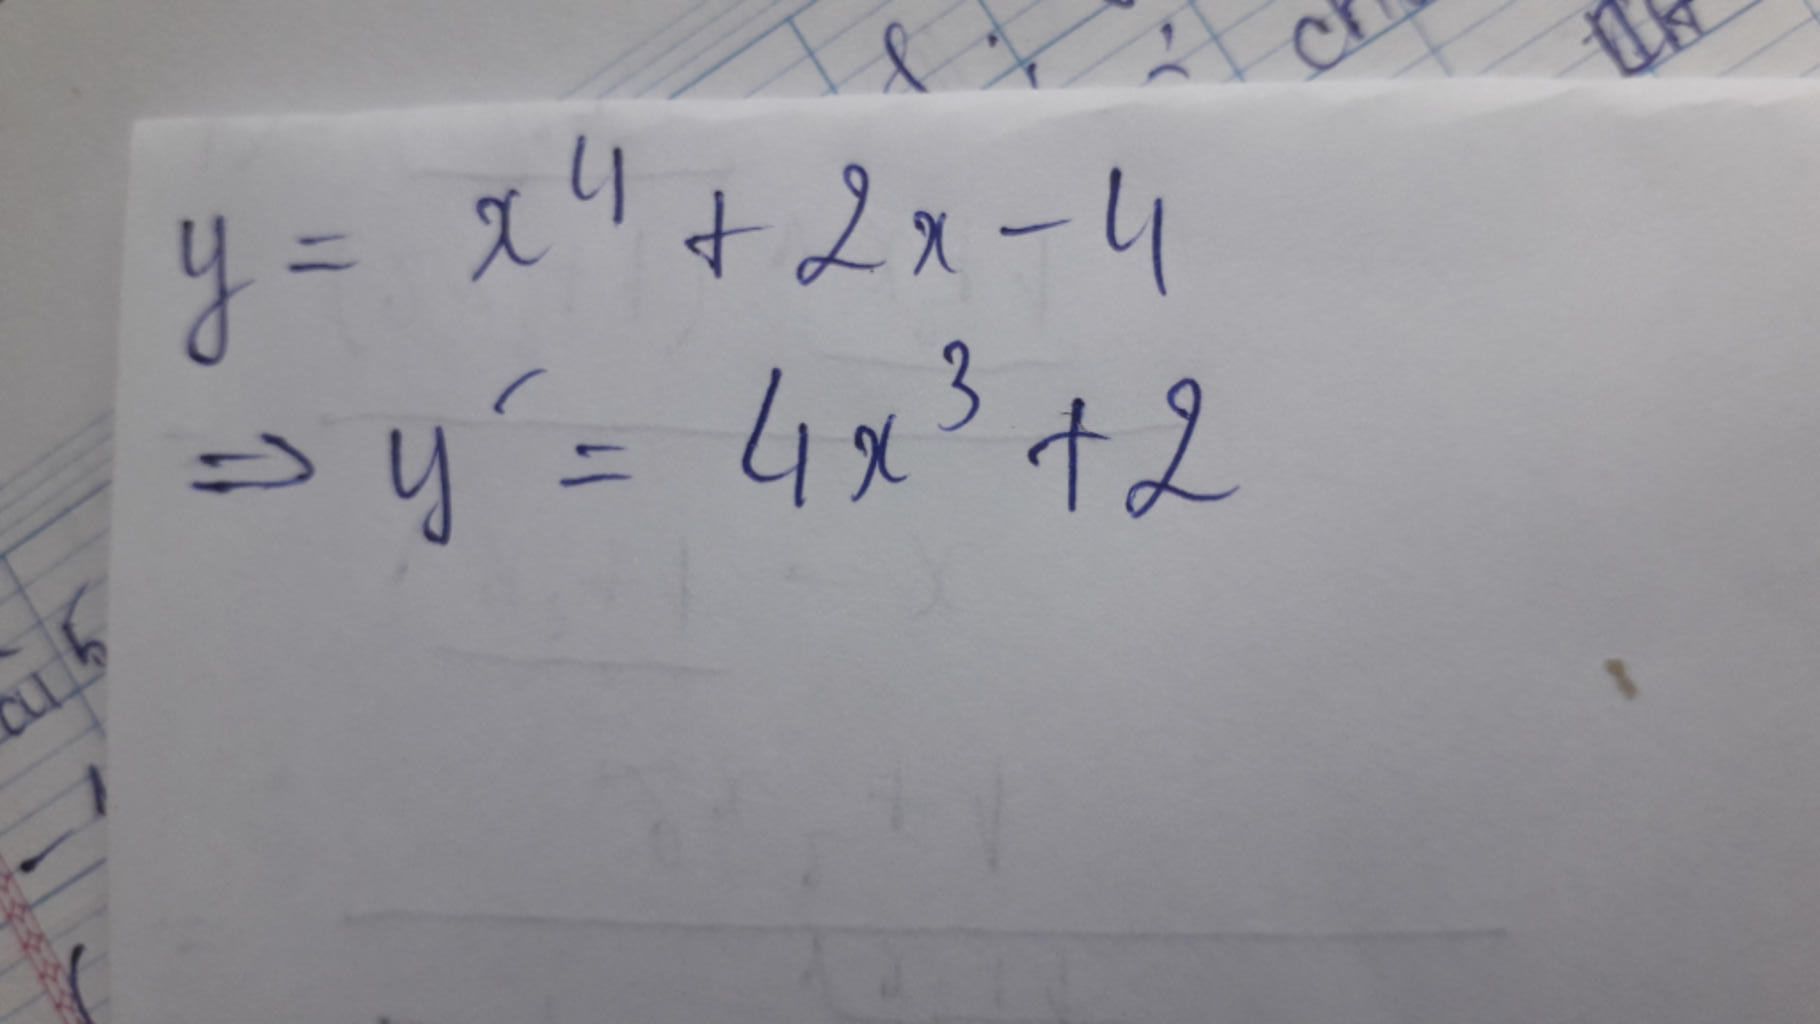 y = x⁴ + 2x - 4
⇒ y' = 4x³ + 2